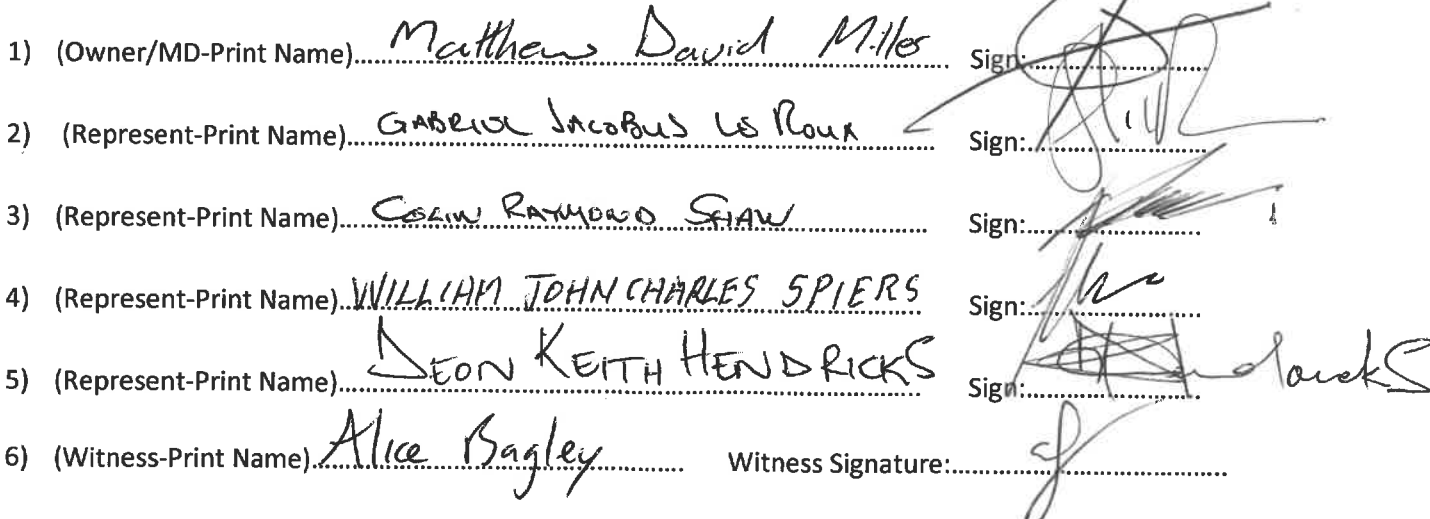 1) (Owner/MD-Print Name)....Matthew David Miller.... Sign:....
2) (Represent-Print Name)....GABRIEL JACOBUS LE ROUX.... Sign:....
3) (Represent-Print Name)....COLIN RAYMOND SHAW.... Sign:....
4) (Represent-Print Name)....WILLIAM JOHN CHARLES SPIERS.... Sign:....
5) (Represent-Print Name)....DEON KEITH HENDRICKS.... Sign:....
6) (Witness-Print Name)....Alice Bagley.... Witness Signature:....